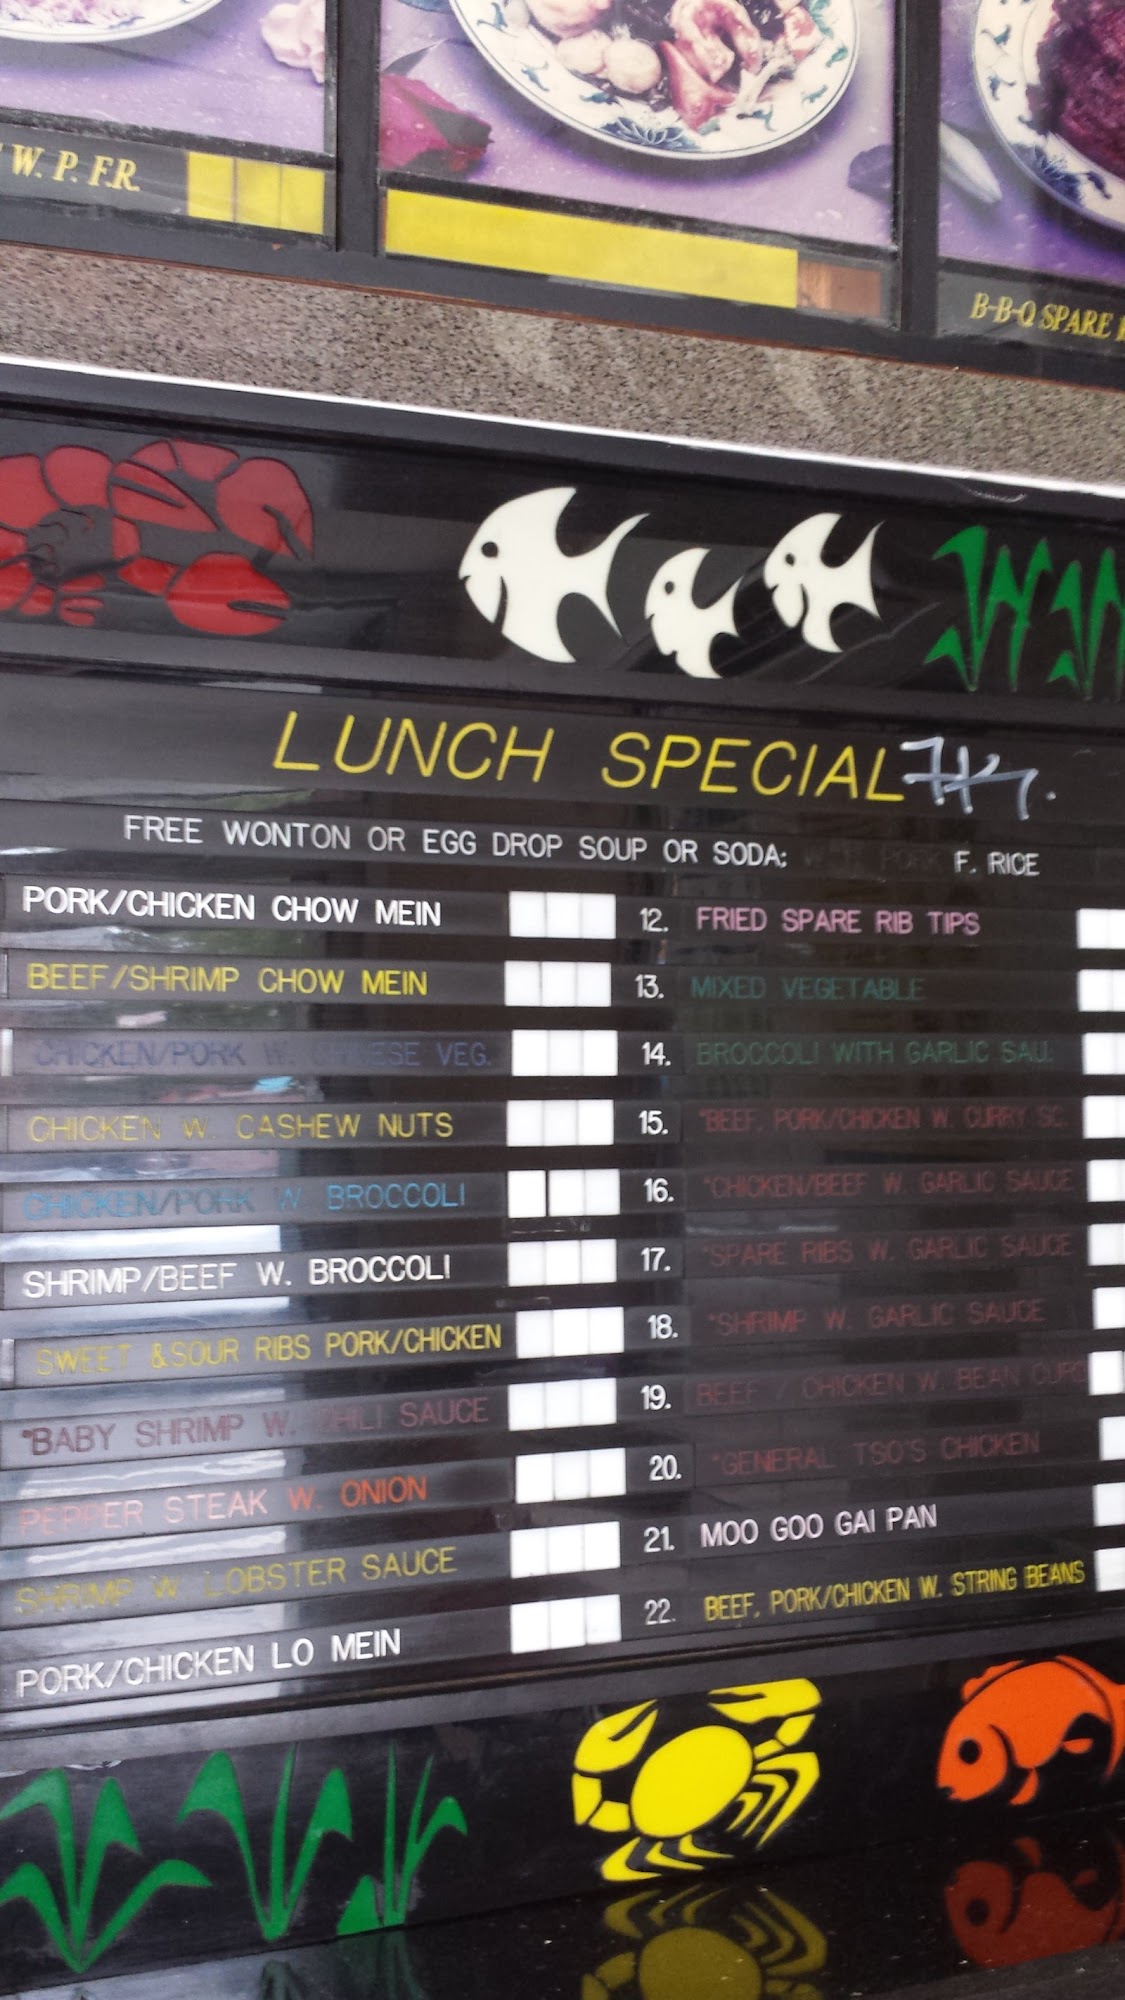 W. P. F.R.
B-B-Q SPARE
LUNCH SPECIAL
FREE WONTON OR EGG DROP SOUP OR SODA: W. PORK F. RICE
PORK/CHICKEN CHOW MEIN
BEEF/SHRIMP CHOW MEIN
CHICKEN/PORK W. CHINESE VEG.
CHICKEN W. CASHEW NUTS
CHICKEN/PORK W BROCCOLI
SHRIMP/BEEF W. BROCCOLI
SWEET &SOUR RIBS PORK/CHICKEN
*BABY SHRIMP W. CHILI SAUCE
PEPPER STEAK W. ONION
SHRIMP W. LOBSTER SAUCE
PORK/CHICKEN LO MEIN
12. FRIED SPARE RIB TIPS
13. MIXED VEGETABLE
14. BROCCOLI WITH GARLIC SAU.
15. *BEEF, PORK/CHICKEN W. CURRY SC.
16. *CHICKEN/BEEF W. GARLIC SAUCE
17. *SPARE RIBS W. GARLIC SAUCE
18. *SHRIMP W. GARLIC SAUCE
19. BEEF / CHICKEN W. BEAN CURD
20. *GENERAL TSO'S CHICKEN
21. MOO GOO GAI PAN
22. BEEF, PORK/CHICKEN W. STRING BEANS